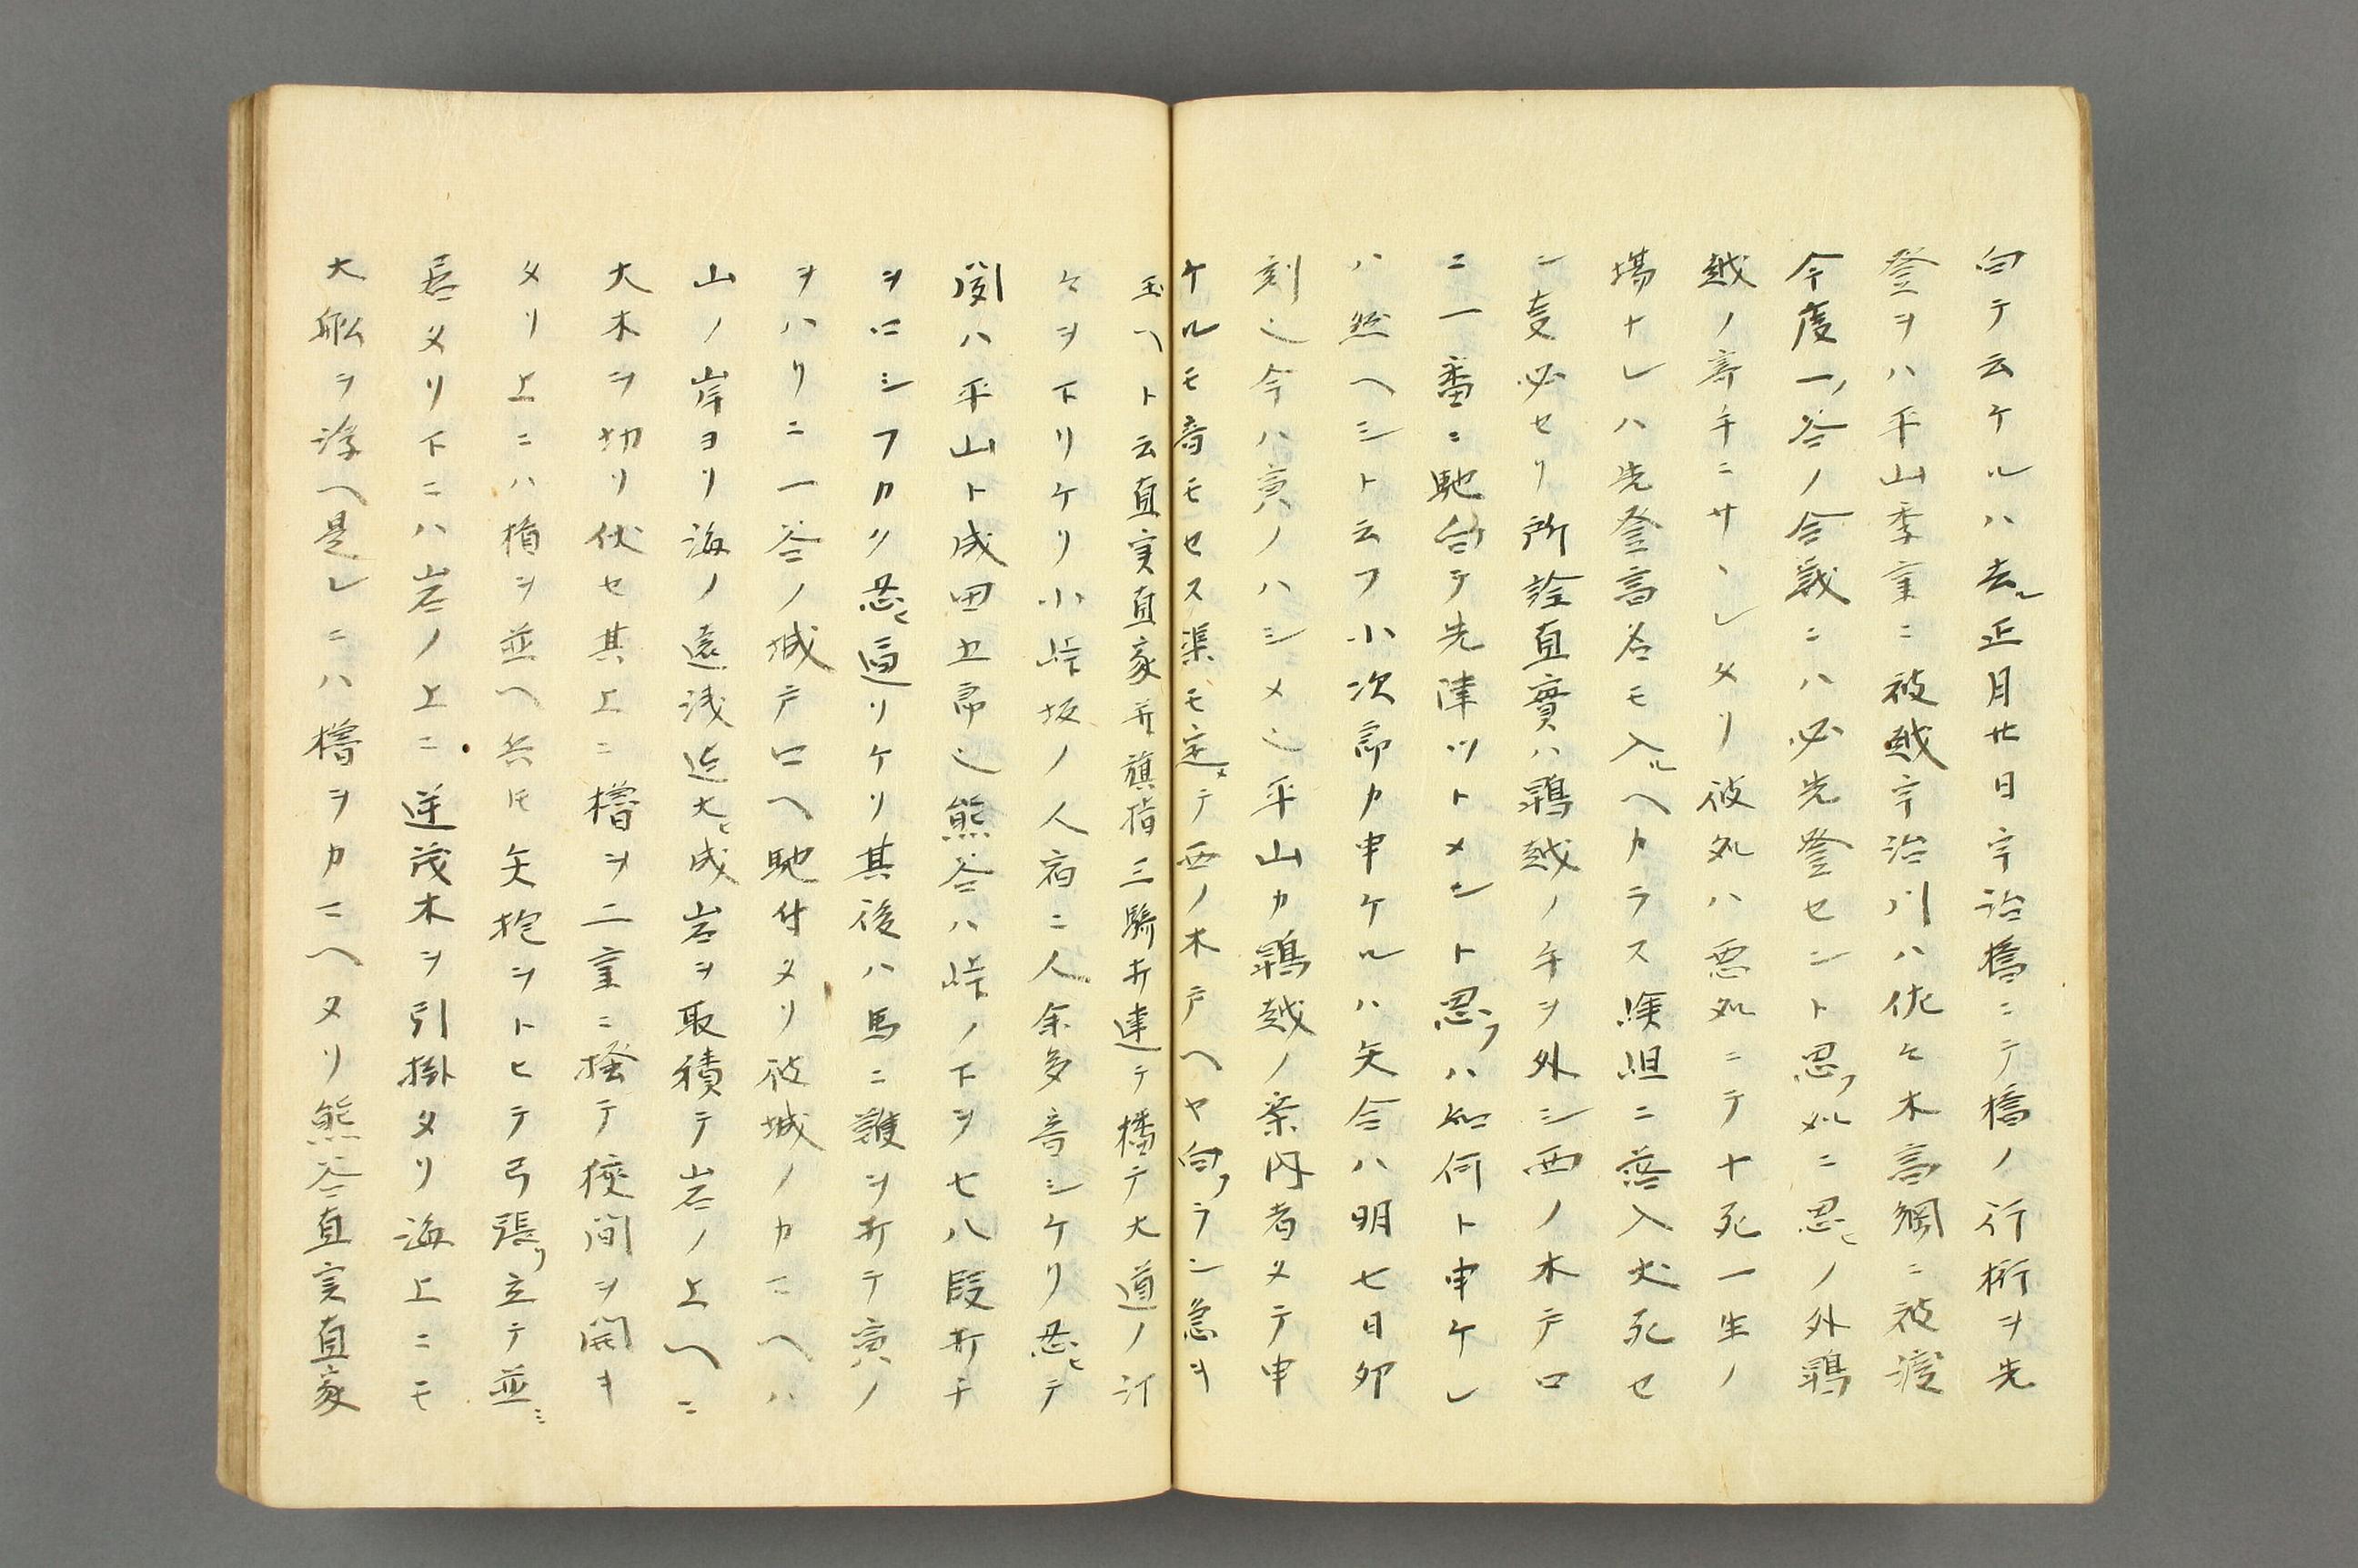 向テ云ケルハ去ル正月廿日宇治橋ニテ橋ノ行桁ヲ先
登ヲハ平山季重ニ被越宇治川ハ佐々木高綱ニ被渡
今度一ノ谷ノ合戦ニハ必先登セント忍フ処ニ忍ヒノ外鵯
越ノ寄手ニサヽレタリ彼処ハ悪処ニテ十死一生ノ
場ナレハ先登高名モ入ルヘカラス嶮岨ニ落入犬死セ
ン㕝必セリ所詮直實ハ鵯越ノ手ヲ外シ西ノ木戸口
ニ一番ニ馳向テ先陣ツトメント忍フハ如何ト申ケレ
ハ然ヘシト云フ小次郎カ申ケルハ矢合ハ明七日卯
刻也今ハ寅ノハシメ也平山カ鵯越ノ案内者タテ申
ケルモ音モセス渠モ定メテ西ノ木戸ヘヤ向フラン急キ
玉ヘト云直実直家并旗指三騎打連テ播テ大道ノ汀
々ヲ下リケリ小峠坂ノ人宿ニ人余多音シケリ忍ヒテ
聞ハ平山ト成田五郎也熊谷ハ峠ノ下ヲ七八段斗チ
ヲロシフカク忍ヒ通リケリ其後ハ馬ニ鞭ヲ打テ寅ノ
ヲハリニ一谷ノ城戸口ヘ馳付タリ彼城ノカマヘハ
山ノ岸ヨリ海ノ遠浅迄大ヒ成岩ヲ取積テ岩ノ上ヘニ
大木ヲ切リ伏セ其上ニ櫓ヲ二重ニ搔テ狭間ヲ開キ
タリ上ニハ楯ヲ並ヘ兵𪜈矢抱ヲトヒテ弓張リ立テ並ミ
居タリ下ニハ岩ノ上ニ逆茂木ヲ引掛タリ海上ニモ
大船ヲ浮ヘ是レニハ櫓ヲカマヘタリ熊谷直実直家